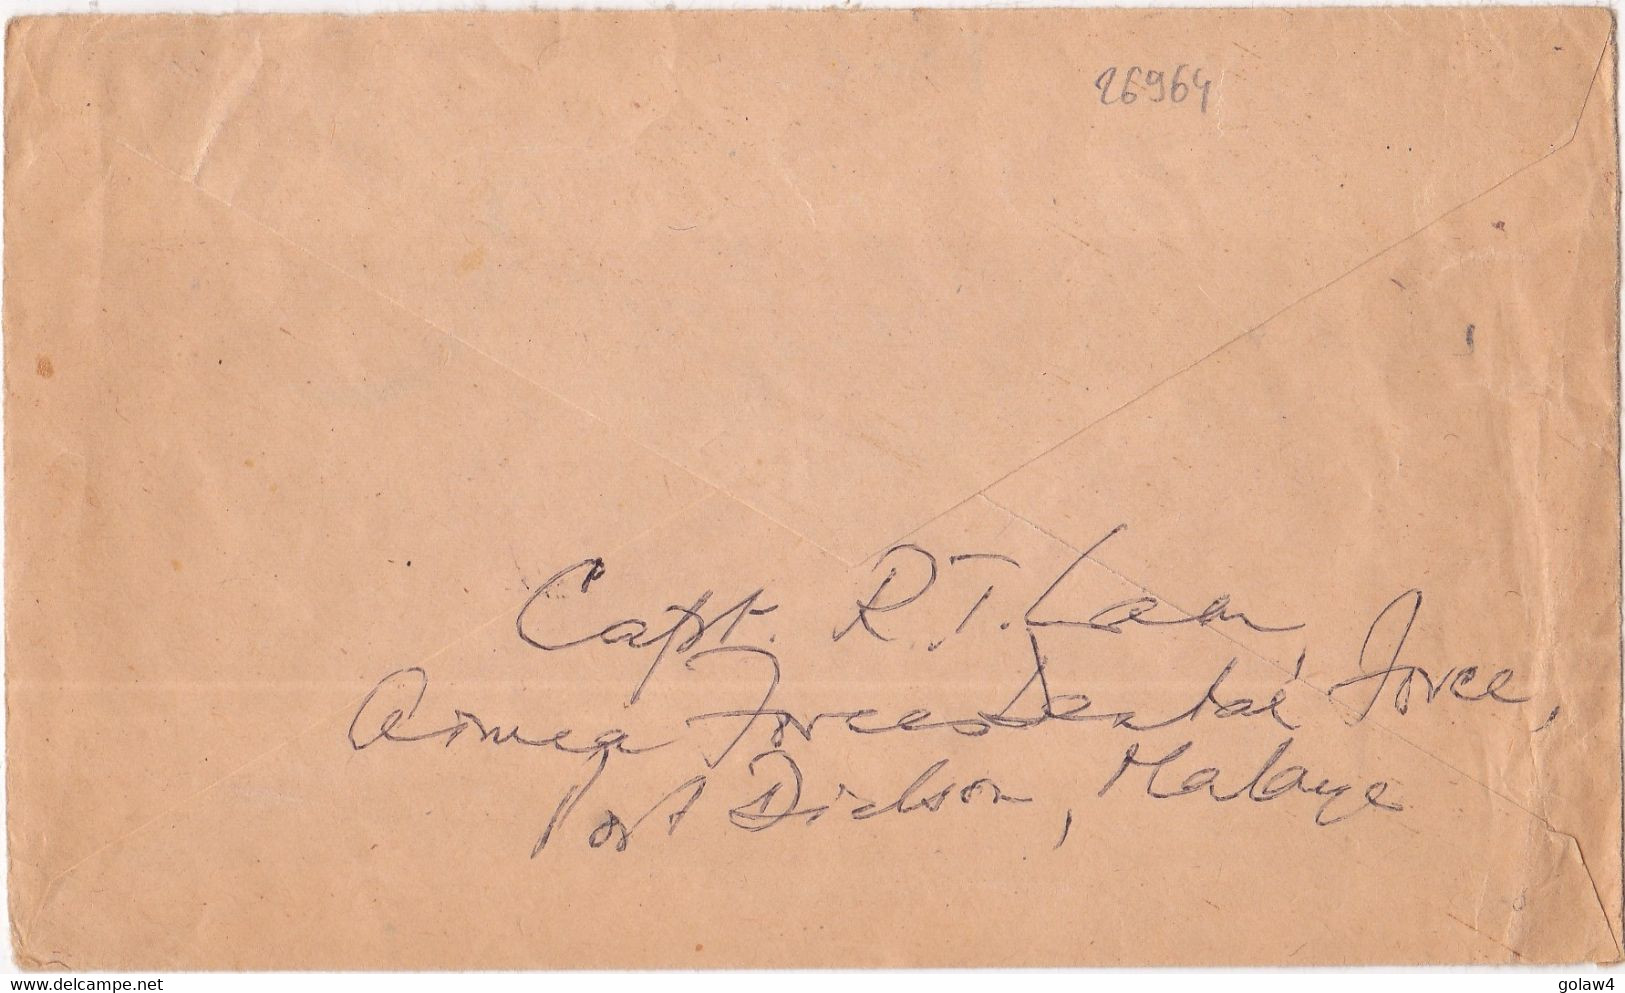 26964
Capt. R. T. Lam,
Armed Forces Dental Force,
Port Dickson, Malaya
delcampe.net
golaw4